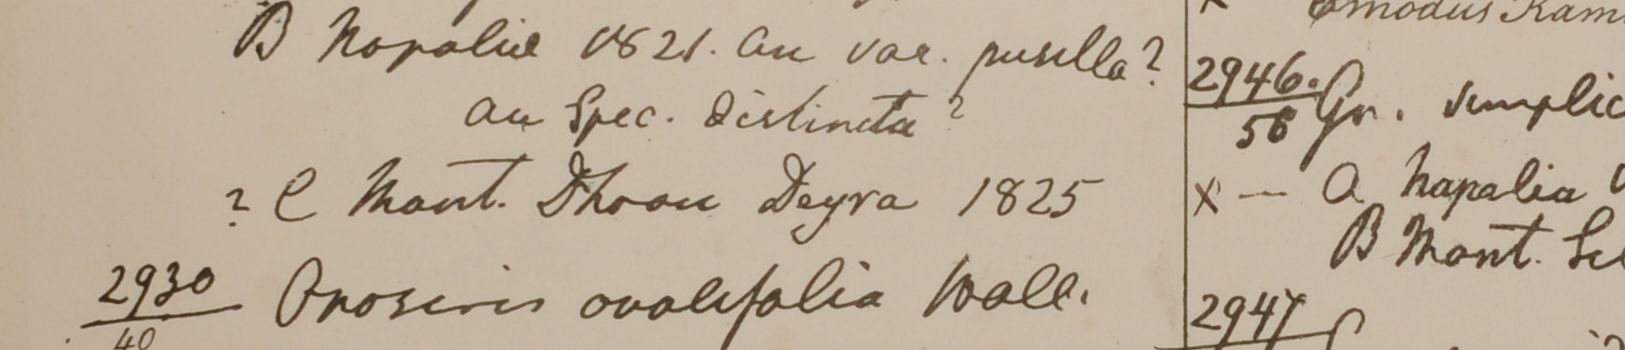 B Napaliæ 1821. an var. pusilla?
an Spec. distincta?
? C Mont. Dhoon Deyra 1825
2930
40
Onoseris ovalifolia Wall.
x Emodus Kam
2946.
56
Gn. simplic
x — a Napalia
B Mont.
2947